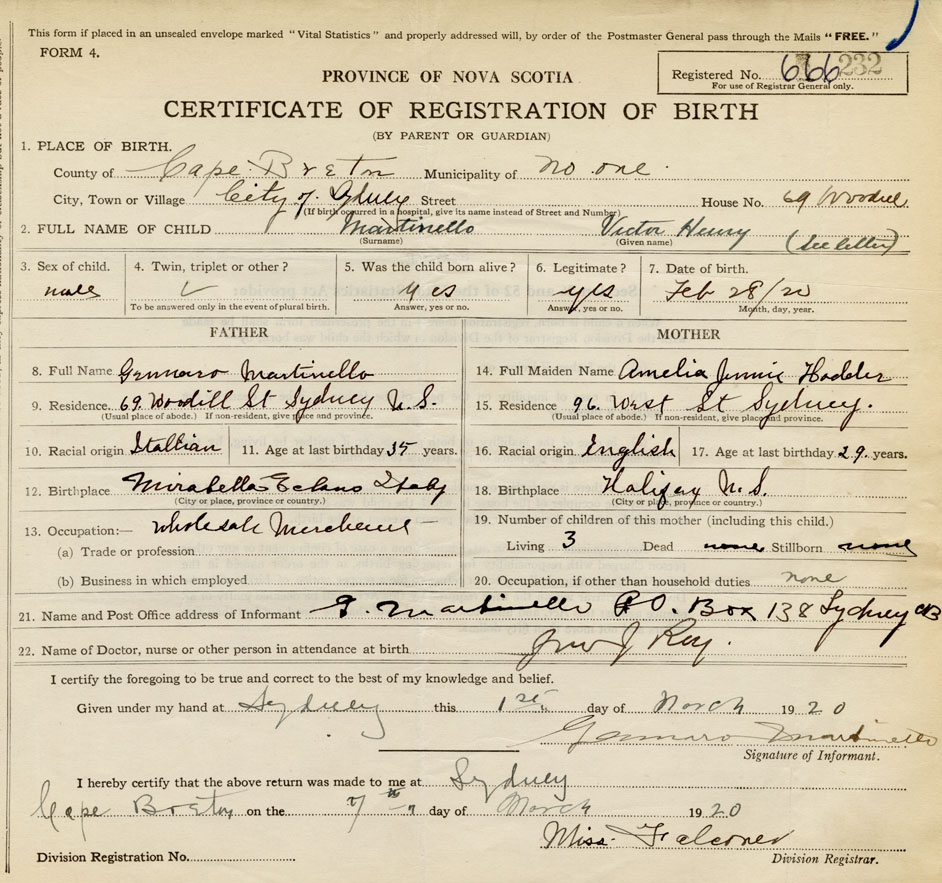 This form if placed in an unsealed envelope marked "Vital Statistics" and properly addressed will, by order of the Postmaster General pass through the Mails "FREE."
FORM 4.
PROVINCE OF NOVA SCOTIA
Registered No. 666 232
For use of Registrar General only.
CERTIFICATE OF REGISTRATION OF BIRTH
(BY PARENT OR GUARDIAN)
1. PLACE OF BIRTH.
County of Cape Breton Municipality of no one.
City, Town or Village City of Sydney Street House No. 69 Woodill
(If birth occurred in a hospital, give its name instead of Street and Number)
2. FULL NAME OF CHILD Martinello Victor Henry (See letter)
(Surname) (Given name)
3. Sex of child. 4. Twin, triplet or other? 5. Was the child born alive? 6. Legitimate? 7. Date of birth.
male yes yes Feb 28/20
To be answered only in the event of plural birth. Answer, yes or no. Answer, yes or no. Month, day, year.
FATHER MOTHER
8. Full Name Gennaro Martinello 14. Full Maiden Name Amelia Jennie Hodder
9. Residence 69 Woodill St Sydney N.S. 15. Residence 96 West St Sydney.
(Usual place of abode.) If non-resident, give place and province. (Usual place of abode.) If non-resident, give place and province.
10. Racial origin Itallian 11. Age at last birthday 35 years. 16. Racial origin English 17. Age at last birthday 29 years.
12. Birthplace Mirabella Eclano Italy 18. Birthplace Halifax N.S.
(City or place, province or country.) (City or place, province or country.)
13. Occupation:— wholesale Merchant 19. Number of children of this mother (including this child.)
(a) Trade or profession Living 3 Dead none Stillborn none
(b) Business in which employed 20. Occupation, if other than household duties. none
21. Name and Post Office address of Informant G. Martinello P.O. Box 138 Sydney CB
22. Name of Doctor, nurse or other person in attendance at birth Jno J Roy.
I certify the foregoing to be true and correct to the best of my knowledge and belief.
Given under my hand at Sydney this 1st day of March 1920
Gennaro Martinello
Signature of Informant.
I hereby certify that the above return was made to me at Sydney
Cape Breton on the 7th day of March 1920
Miss Falconer
Division Registration No. Division Registrar.